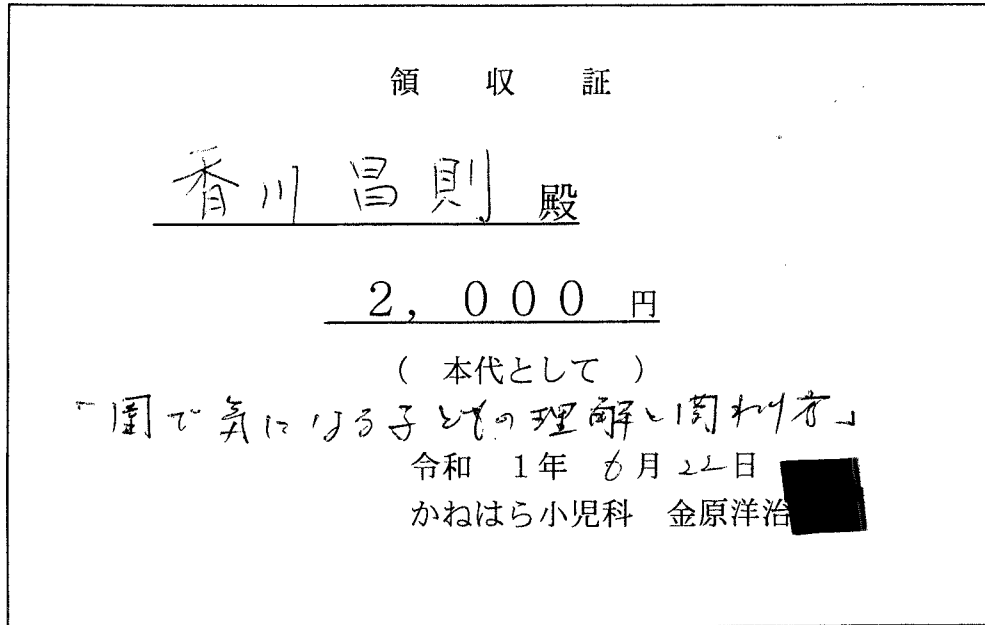 領 収 証
香川 昌則 殿
2,000 円
( 本代として )
「園で気になる子どもの理解と関わり方」
令和 1年 6月 22日
かねはら小児科 金原洋治